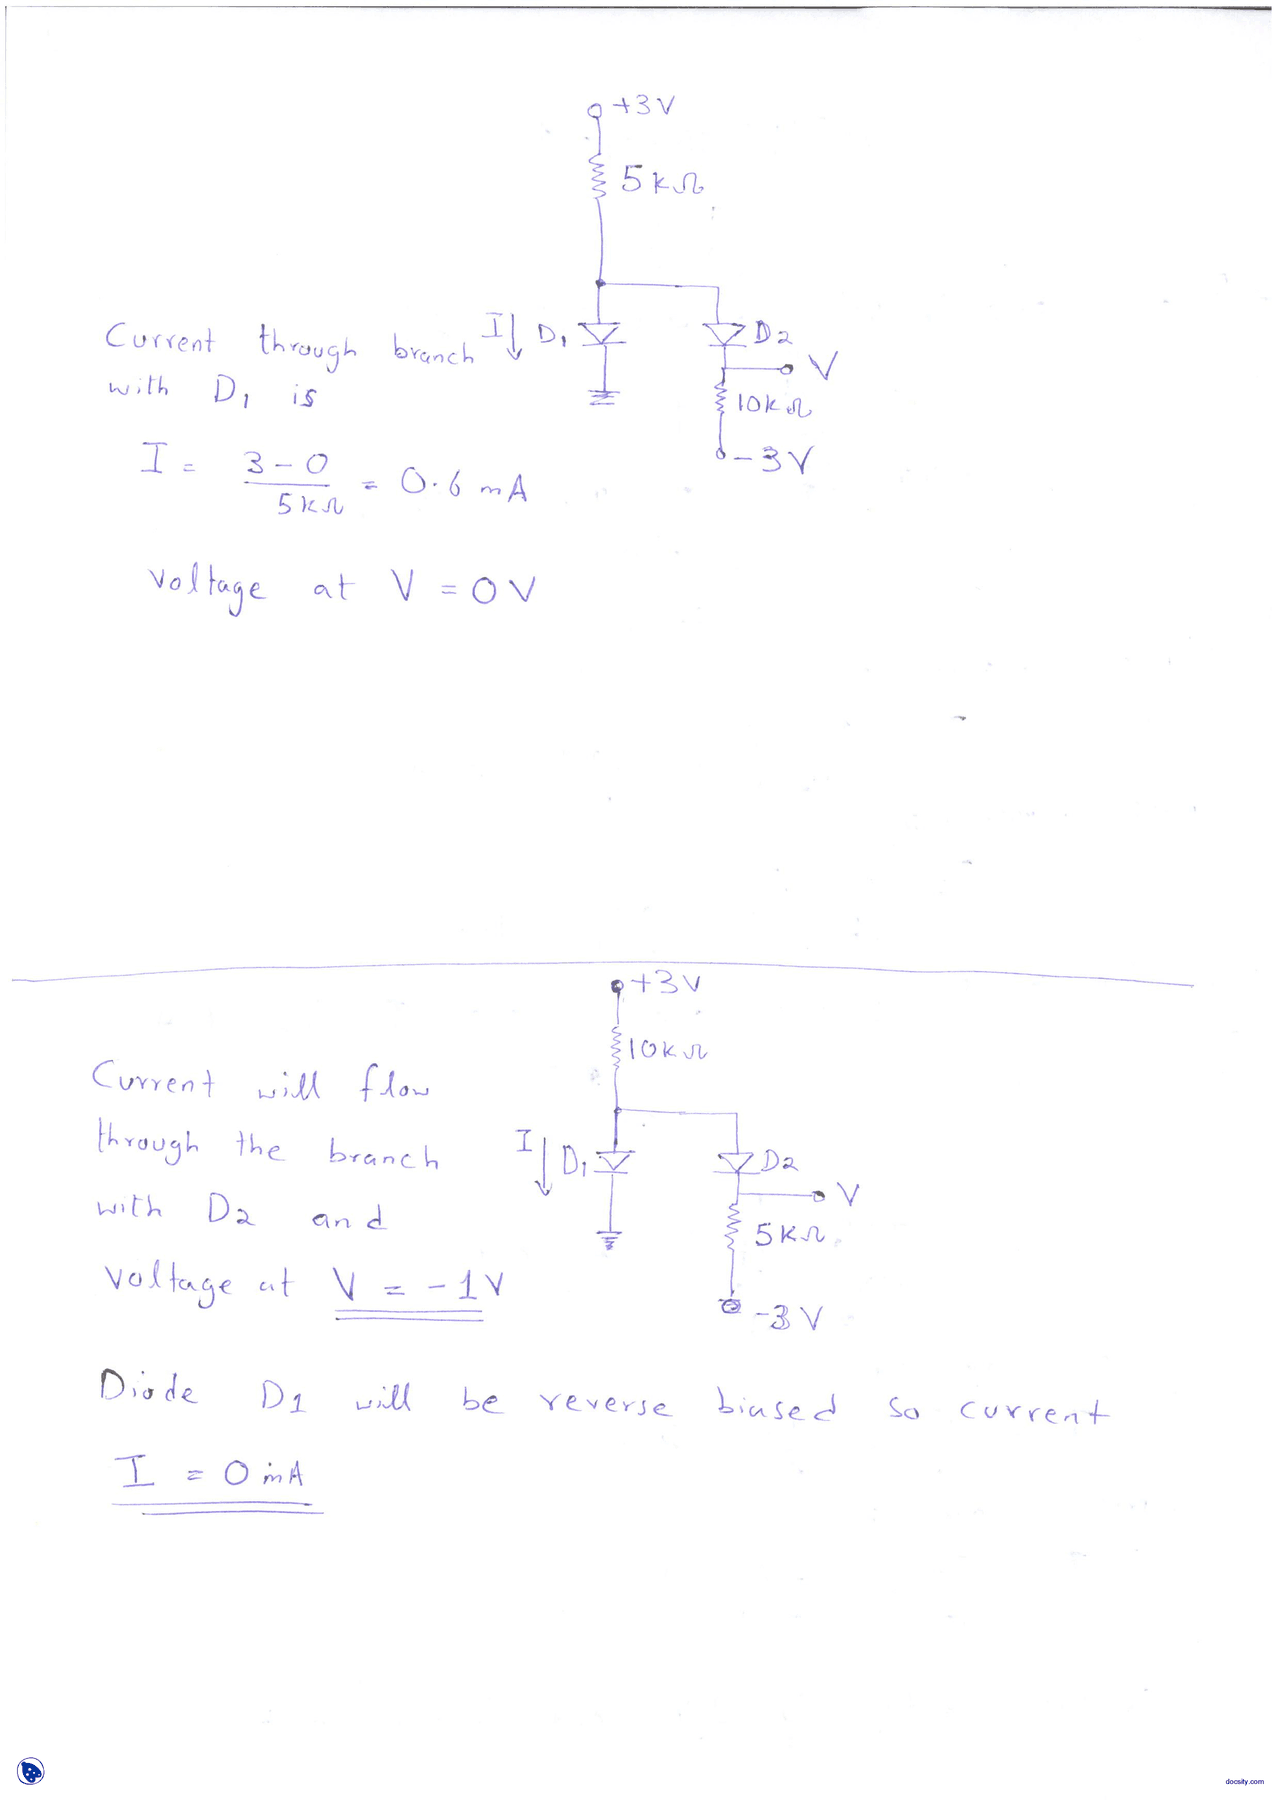 +3V
5kΩ
Current through branch
with D1 is
I D1
D2
V
10kΩ
-3V
I = 3-0 / 5kΩ = 0.6 mA
Voltage at V = 0V
+3V
10kΩ
Current will flow
through the branch
with D2 and
Voltage at V = -1V
I D1
D2
V
5kΩ
-3V
Diode D1 will be reverse biased so current
I = 0mA
docsity.com